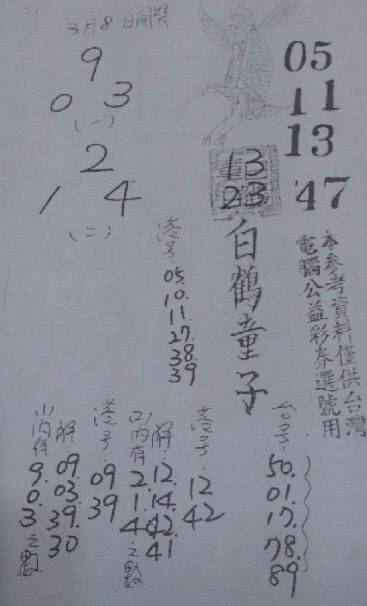 3月8日開獎
9
0 3
(一)
2
1 4
(二)
05
11
13
47
13
23
白鶴童子
本參考資料僅供台灣
電腦公益彩券選號用
港号:
05.
10.
11.
27.
38.
39
台号:
50.
01.
17.
78.
89
港号:
12
42
解:
12.
14.
42.
41
(2)內有
2.
1.
4
之數
港号:
09
39
解:
09.
03.
39.
30
(1)內有
9.
0.
3
之數